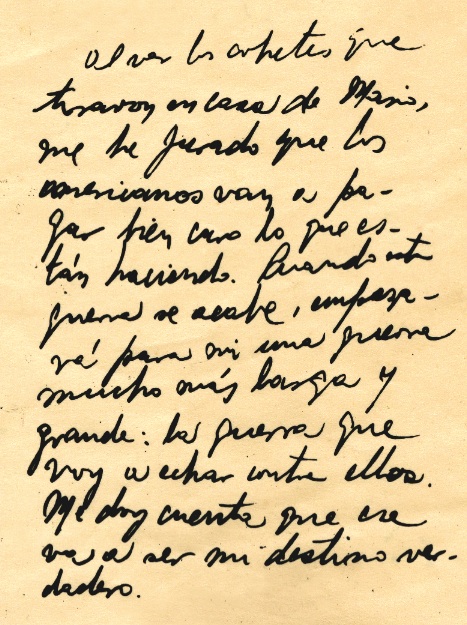 Al ver los cohetes que
tiraron en casa de Mario,
me he jurado que los
americanos van a pa-
gar bien caro lo que es-
tán haciendo. Cuando esta
guerra se acabe, empeza-
rá para mi una guerra
mucho más larga y
grande: la guerra que
voy a echar contra ellos.
Me doy cuenta que ese
va a ser mi destino ver-
dadero.